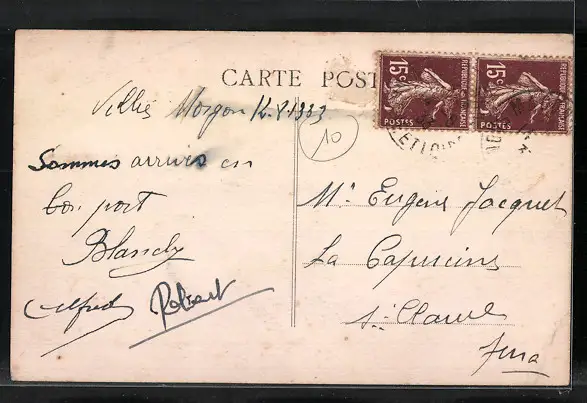 CARTE POST
15c REPUBLIQUE FRANÇAISE POSTES
15c REPUBLIQUE FRANÇAISE POSTES
ET LOIR
Villié Morgon 12.8.1933
10
Sommes arrivés en
bon port
Blanche
Alfred Robert
Mr Eugene Jacquet
La Capucins
St Claude
Jura